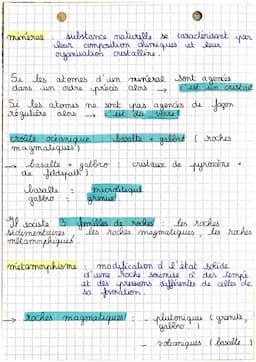 minéral : substance naturelle se caractérisant par
leur composition chimiques et leur
organisation cristalline.
Si les atomes d'un minéral sont agencés
dans un ordre précis alors → c'est un cristal
Si les atomes ne sont pas agencés de façon
régulière alors → c'est du verre
croûte océanique : basalte + gabbro ( roches
magmatiques )
→ basalte + gabbro : cristaux de pyroxène +
de feldspath
basalte = microlitique
gabbro = grenue
Il existe 3 familles de roches : les roches
sédimentaires, les roches magmatiques, les roches
métamorphiques
métamorphisme : modification à l'état solide
d'une roche soumise à des temp
et des pressions différentes de celles de
sa formation.
→ roches magmatiques : - plutoniques ( granite,
gabbro ..)
- volcaniques ( basalte )